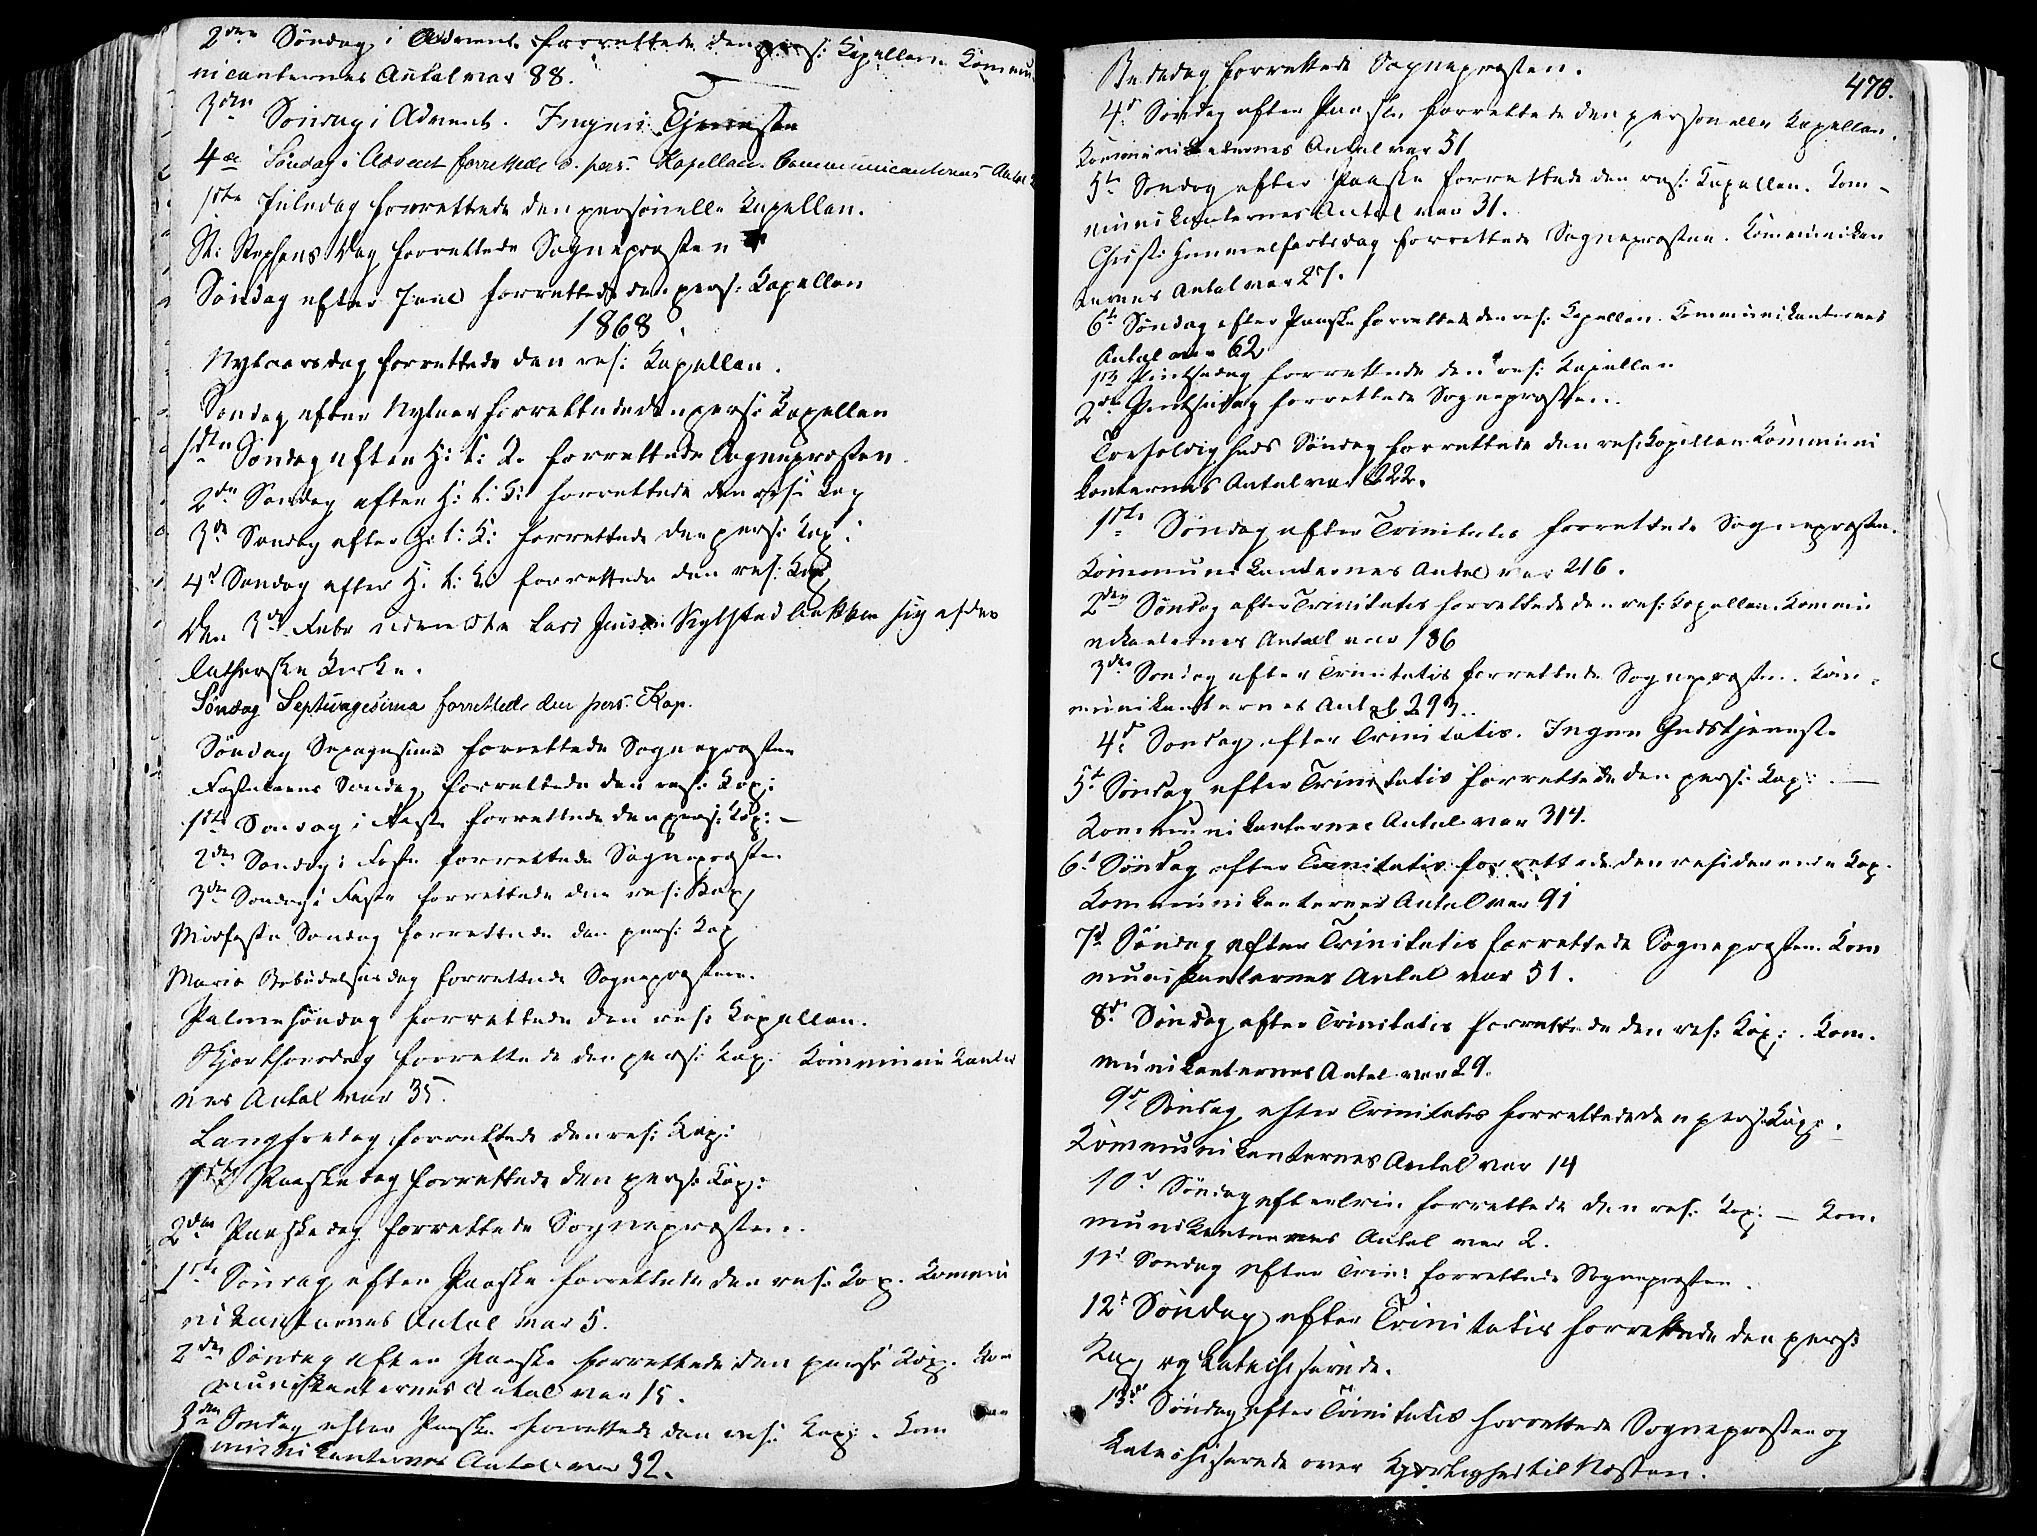 2den Søndag i Advent forrettede den pers: Kapellan. Kommu-
nicanternes Antal var 88.
3den Søndag i Advent. Ingen Tjeneste
4de Søndag i Advent forrettede d. pers. Kapellan. Communicanternes Antal
1ste Juledag forrettede den personelle Kapellan.
St: Stephans Dag forrettede Sognepræsten
Søndag efter Juul forrettede den pers: Kapellan
1868.
Nytaarsdag forrettede den res: Kapellan.
Søndag efter Nytaar forrettede den pers: Kapellan
1ste Søndag efter H: t: K. forrettede Sognepræsten.
2den Søndag efter H: t: K: forrettede den res: Kap
3de Søndag efter H: t: K: forrettede den pers: Kap:
4d Søndag efter H. t: K: forrettede den res: Kap
Den 3de Febr Lars Jensen sig af den
lutherske Kirke.
Søndag Septuagesima forrettede den pers. Kap.
Søndag Sexagesima forrettede Sognepræsten
Fastelavns Søndag forrettede den res: Kap:
1ste Søndag i Faste forrettede den pers: Kap: —
2den Søndag i Faste forrettede Sognepræsten
3den Søndag i Faste forrettede den res: Kap
Midfaste Søndag forrettede den pers: Kap
Maria Bebudelsesdag forrettede Sognepræsten.
Palmesøndag forrettede den res: Kapellan.
Skjærthorsdag forrettede den pers: Kap: Kommunikanter
nes Antal var 35.
Langfredag forrettede den res: Kap:
1ste Paaskedag forrettede den pers: Kap:
2den Paaskedag forrettede Sognepræsten.
1ste Søndag efter Paaske forrettede den res: Kap. Kommu
nikanternes Antal var 5.
2den Søndag efter Paaske forrettede den pers: Kap. Kom
munikanternes Antal var 15.
3den Søndag efter Paaske forrettede den res: Kap: . Kom
munikanternes Antal var 32.
470.
Bededag forrettede Sognepræsten.
4d Søndag efter Paaske forrettede den personelle Kapellan.
Kommunikanternes Antal var 51
5te Søndag efter Paaske forrettede den res: Kapellan. Kom-
munikanternes Antal var 31.
Christi Himmelfartsdag forrettede Sognepræsten. Kommunikan
ternes Antal var 27.
6te Søndag efter Paaske forrettede den res: Kapellan. Kommunikanternes
Antal var 62
1ste Pintsedag forrettede den res: Kapellan
2den Pintsedag forrettede Sognepræsten.
Trefoldigheds Søndag forrettede den res: Kapellan Kommuni
kanternes Antal var 222.
1ste Søndag efter Trinitatis forrettede Sognepræsten.
Kommunikanternes Antal var 216.
2den Søndag efter Trinitatis forrettede den res: Kapellan. Kommu
nikanternes Antal var 186
3den Søndag efter Trinitatis forrettede Sognepræsten. Kom-
munikanternes Antal 293.
4d Søndag efter Trinitatis. Ingen Gudstjeneste
5t Søndag efter Trinitatis forrettede den pers: Kap: —
Kommunikanternes Antal var 314.
6t Søndag efter Trinitatis forrettede den residerende Kap.
Kommunikanternes Antal var 91
7d Søndag efter Trinitatis forrettede Sognepræsten. Kom
munikanternes Antal var 51.
8d Søndag efter Trinitatis forrettede den res: Kap: . Kom-
munikanternes Antal var 29.
9d Søndag efter Trinitatis forrettede den pers: Kap: .
Kommunikanternes Antal var 14
10d Søndag efter Trin forrettede den res: Kap: — Kom
munikanternes Antal var 2.
11t Søndag efter Trin: forrettede Sognepræsten.
12t Søndag efter Trinitatis forrettede den pers:
Kap og katechiserede.
13de Søndag efter Trinitatis forrettede Sognepræsten og
katechiserede over Kjærlighed til Næsten.